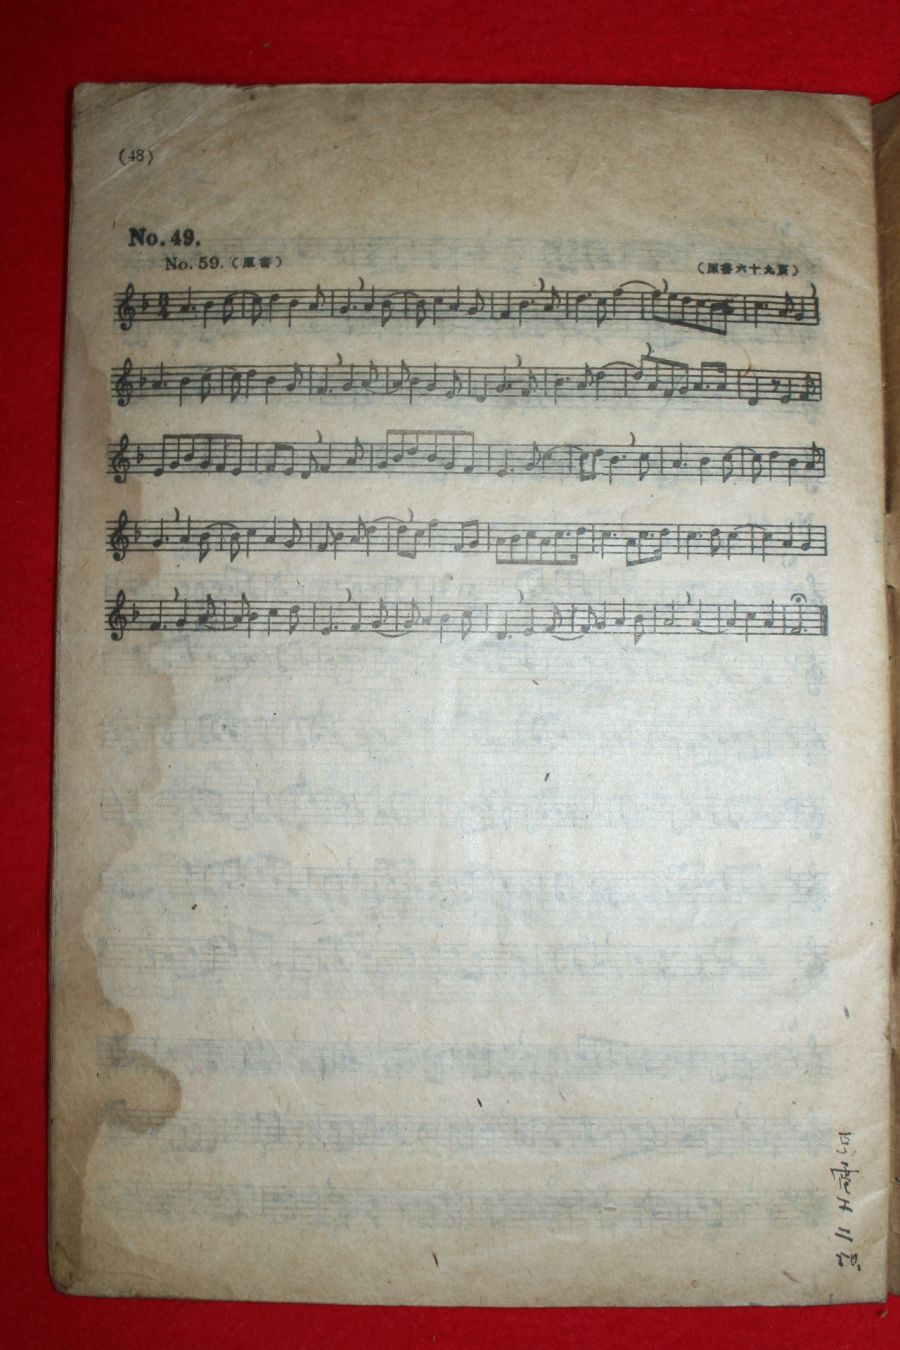 (48)
No. 49.
No. 59. (原書)
(原書六十九頁)